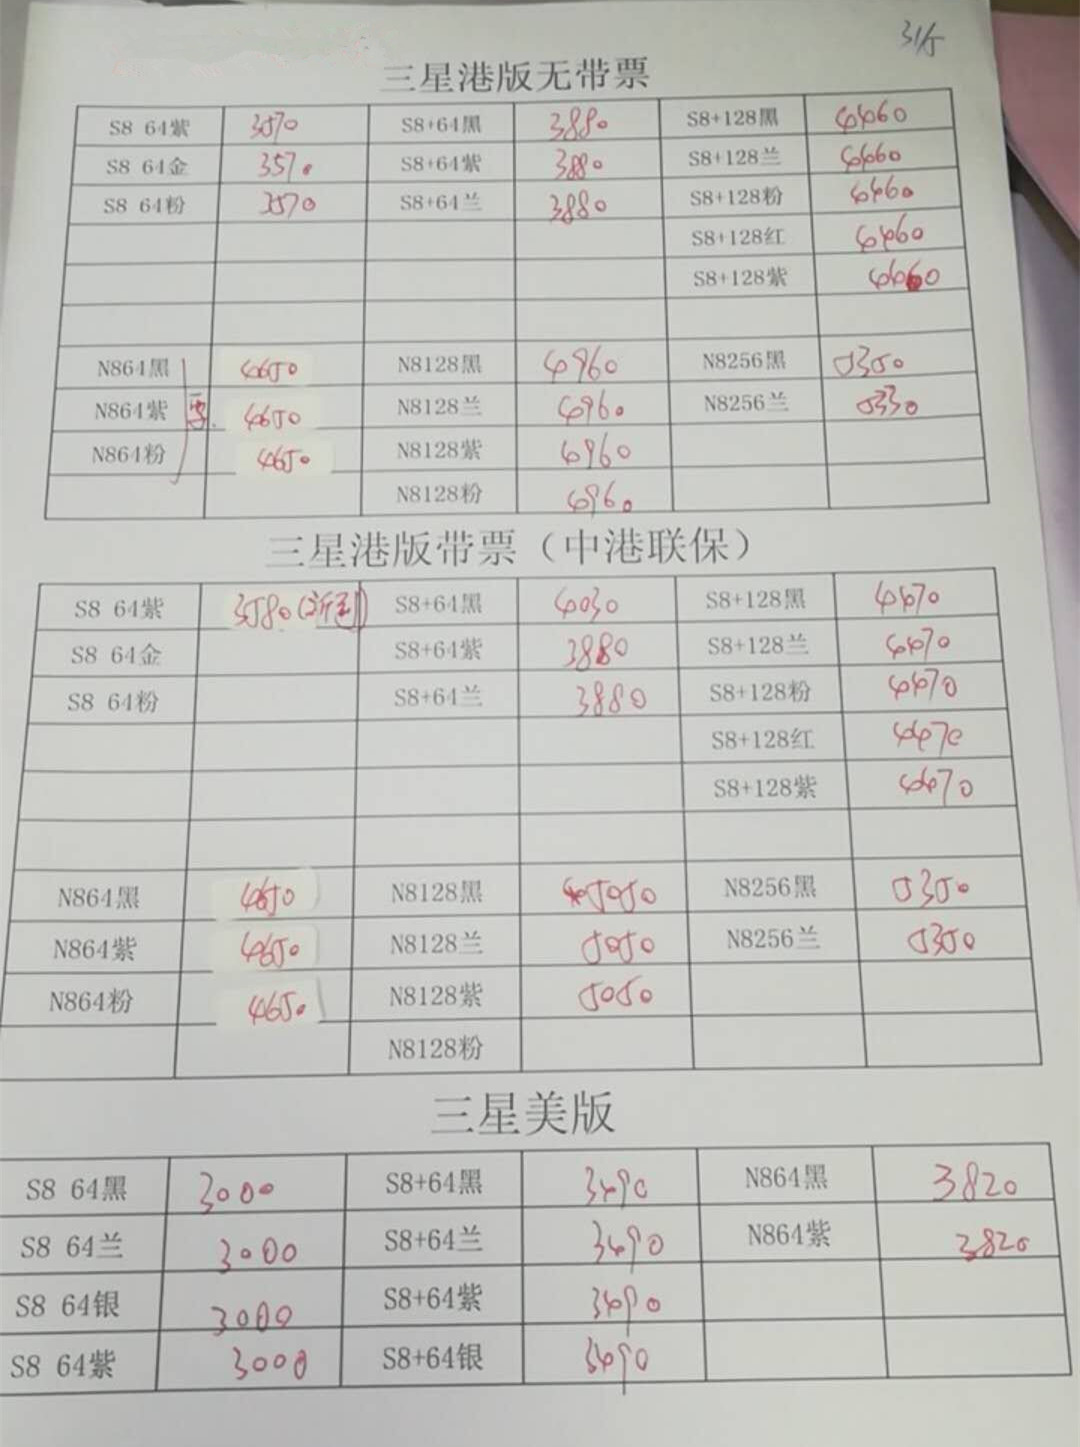 31/5
三星港版无带票
S8 64紫 3570 S8+64黑 3880 S8+128黑 4460
S8 64金 3570 S8+64紫 3880 S8+128兰 4460
S8 64粉 3570 S8+64兰 3880 S8+128粉 4460
S8+128红 4460
S8+128紫 4460
N864黑 4650 N8128黑 4960 N8256黑 5350
N864紫 4650 N8128兰 4960 N8256兰 5330
N864粉 4650 N8128紫 4960
N8128粉 4960
三星港版带票（中港联保）
S8 64紫 3580(新到) S8+64黑 4030 S8+128黑 4470
S8 64金 S8+64紫 3880 S8+128兰 4470
S8 64粉 S8+64兰 3880 S8+128粉 4470
S8+128红 4470
S8+128紫 4470
N864黑 4650 N8128黑 5050 N8256黑 5350
N864紫 4650 N8128兰 5050 N8256兰 5350
N864粉 4650 N8128紫 5050
N8128粉
三星美版
S8 64黑 3000 S8+64黑 3490 N864黑 3820
S8 64兰 3000 S8+64兰 3490 N864紫 3820
S8 64银 3000 S8+64紫 3490
S8 64紫 3000 S8+64银 3490